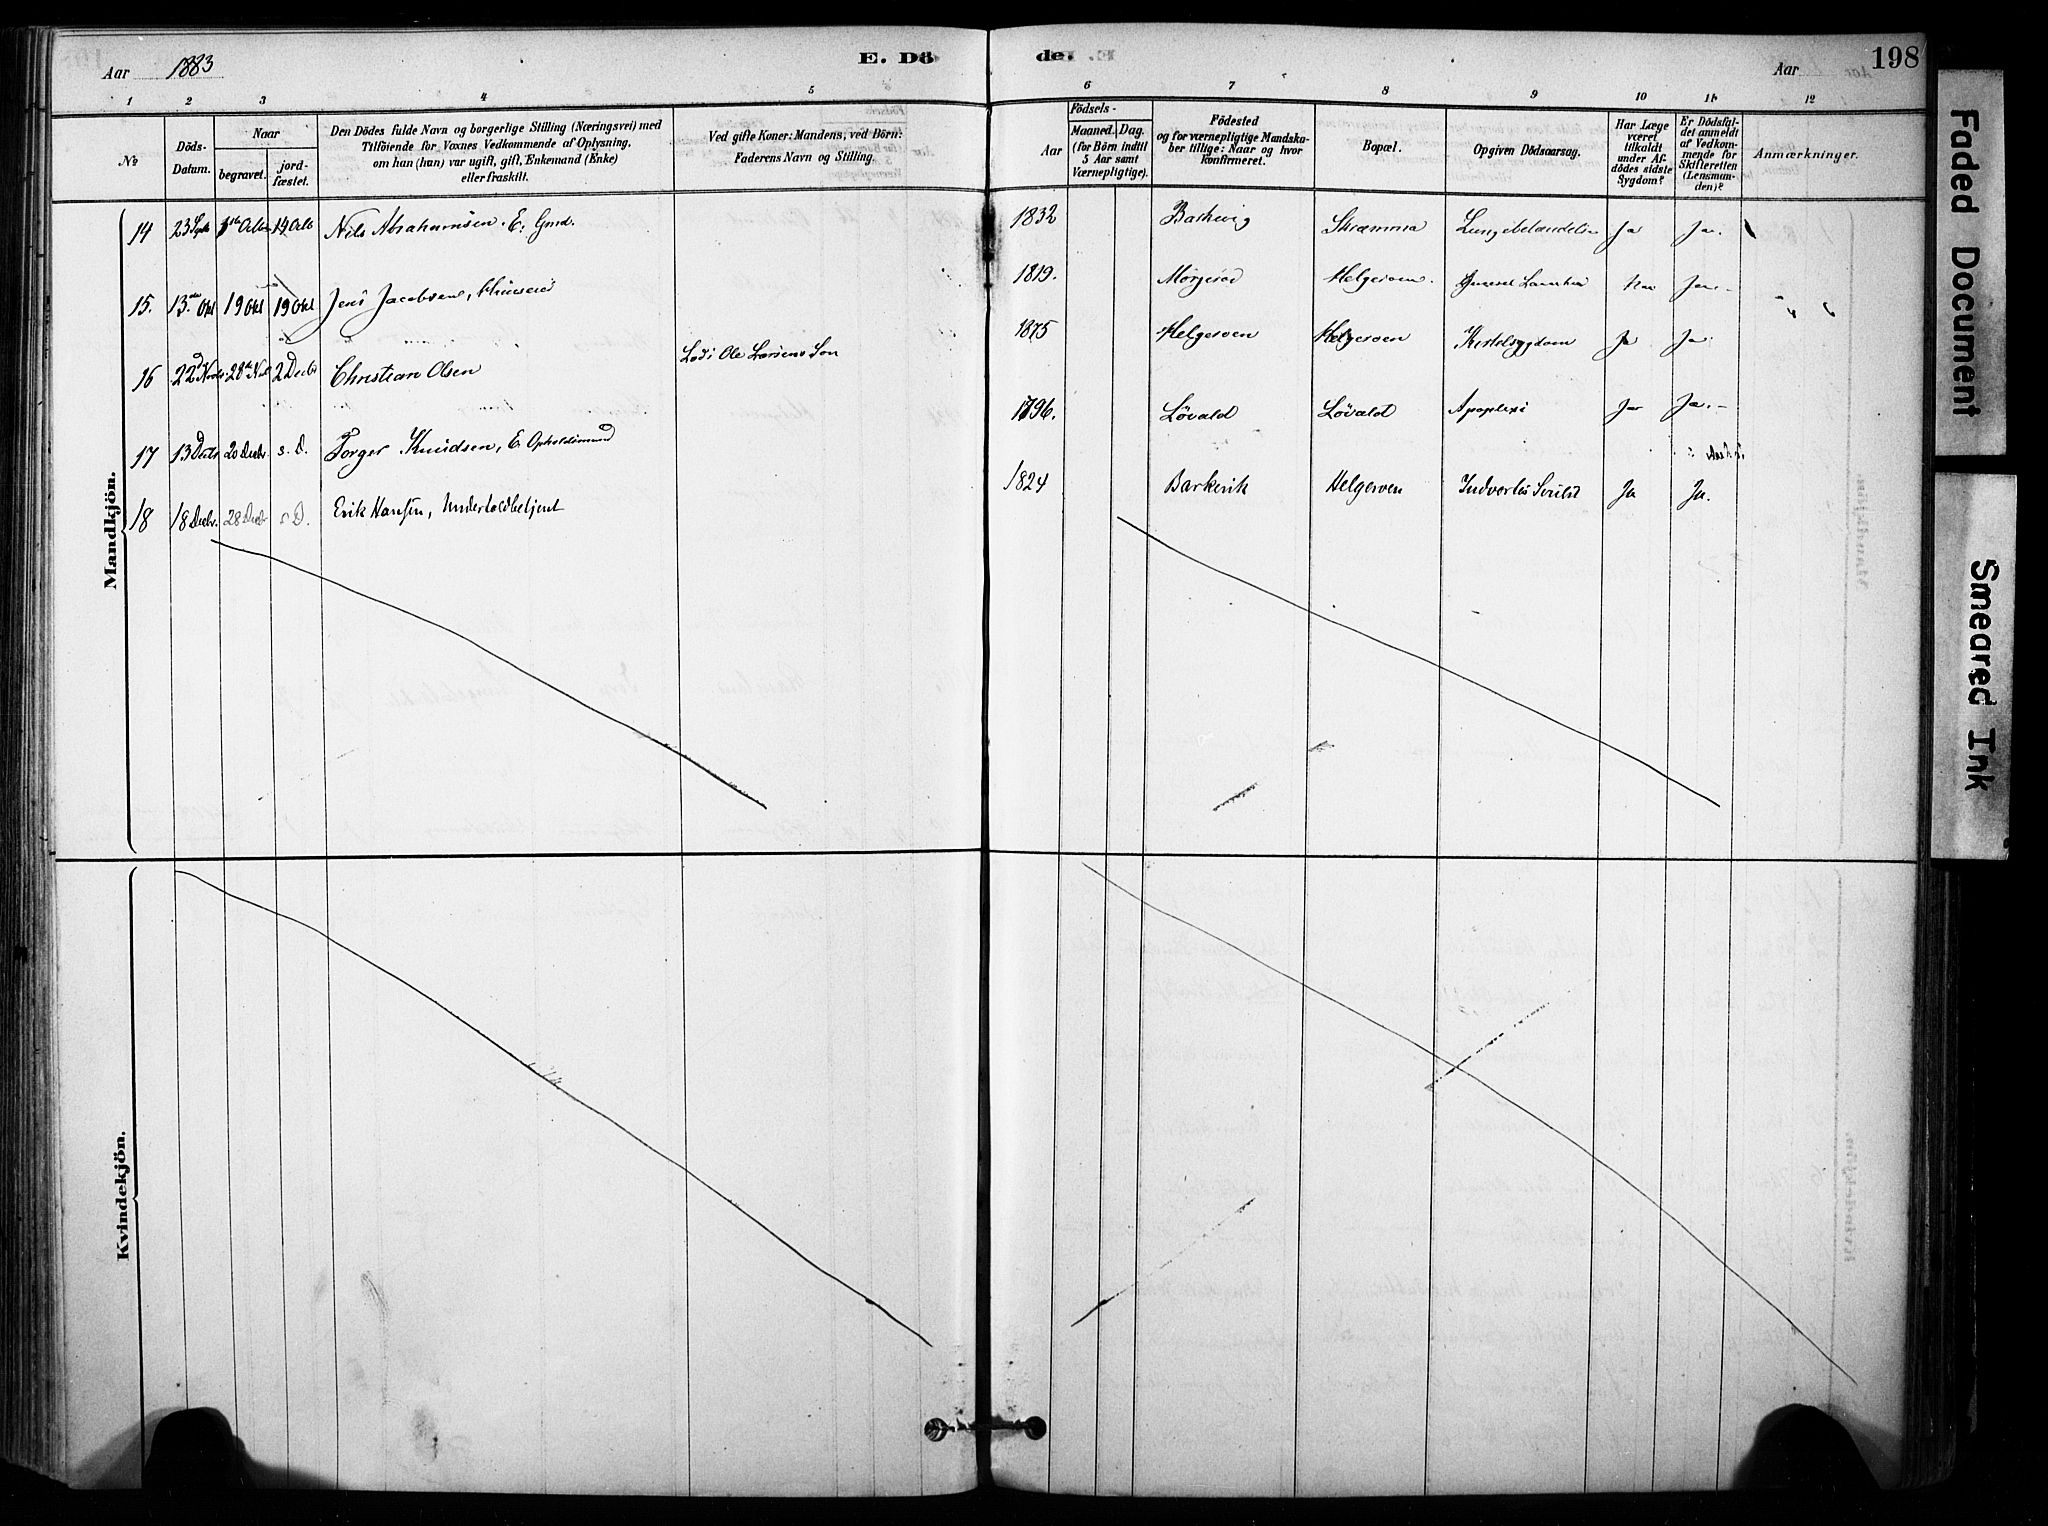 Aar 1883
E. Dö
de.
Aar
198
1 2 3 4 5 6 7 8 9 10 11 12
No
Döds-Datum.
Naar
begravet.
jord-fæstet.
Den Dödes fulde Navn og borgerlige Stilling (Næringsvei) med
Tilföiende for Voxnes Vedkommende af Oplysning,
om han (hun) var ugift, gift, Enkemand (Enke)
eller fraskilt.
Ved gifte Koner: Mandens, ved Börn:
Faderens Navn og Stilling.
Födsels-
Aar
Maaned. Dag.
(for Börn indtil
5 Aar samt
Værnepligtige).
Födested
og for værnepligtige Mandska-
ber tillige: Naar og hvor
konfirmeret.
Bopæl.
Opgiven Dödsaarsag.
Har Læge
været
tilkaldt
under Af-
dödes sidste
Sygdom?
Er Dödsfal-
det anmeldt
af Vedkom-
mende for
Skifteretten
(Lensman-
den)?
Anmærkninger.
Mandkjön.
14 23 Septr 14 Octb Nils Abrahamsen. E. Gmd. 1832 Barkevig Skræmma Ja Ja.
15. 13de Okt 19 Okt 19 Okt Jens Jacobsen, Huuseier 1819. Helgeroen. Ja.
16 22 Novbr 28de Nov 2 Decbr Christian Olsen Lods Ole Larsens Søn 1875 Helgeroen Helgeroen Kirtelsygdom Ja Ja.
17 13 Decbr 20 Decbr s. D. Torger Knudsen, E. Opholdsmand 1796. Løvald Løvald Apoplexi Ja Ja.
18 18 Decbr. 28 Decbr s D. Erik Hansen, Undertoldbetjent 1824 Barkevik Helgeroen Indvortes Svulst Ja Ja.
Kvindekjön.
Faded Document
Smeared Ink